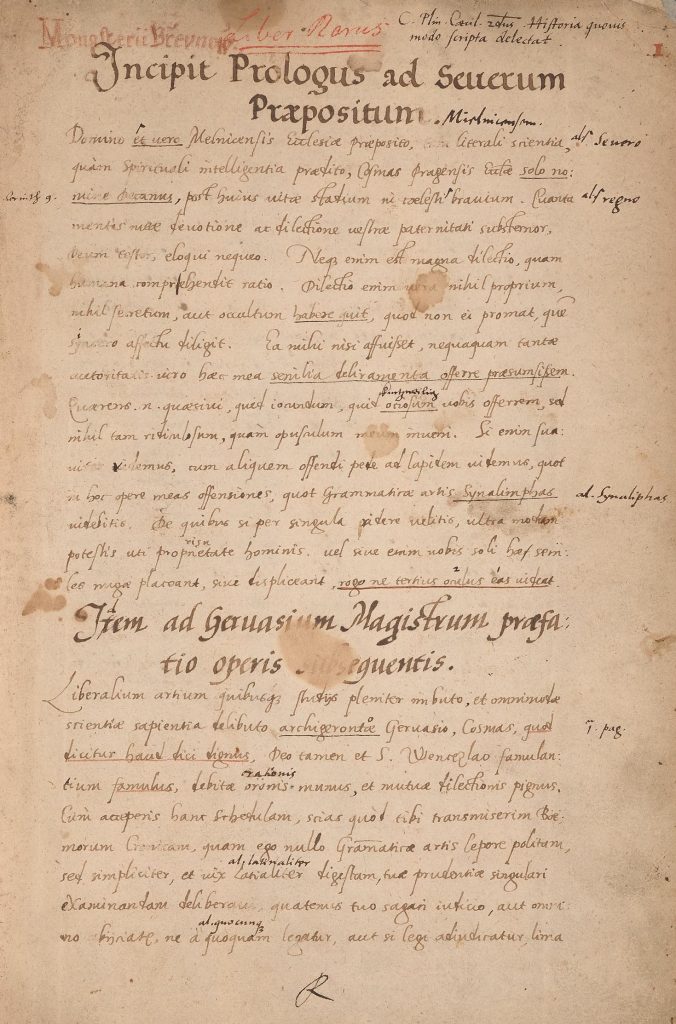 Monasterii Brevnov
Liber Rarus
C. Plin. Cæcil. 2dus. Historia quovis
modo scripta delectat.
1
Incipit Prologus ad Severum
Præpositum. Mielnicensem.
Domino et vere Melnicensis Ecclesiæ præposito, tam literali scientia, als Severo
quàm spirituali intelligentia prædito, Cosmas Pragensis Ecclæ solo no:
Corinth 9. mine Decanus, post huius vitæ stadium in cœlesti bravium. Quanta als regno
mentis meæ devotione ac dilectione vestræ paternitati substernor,
Deum testor, eloqui nequeo. Neq3 enim est magna dilectio, quam
humana comprehendit ratio. Dilectio enim vera nihil proprium,
nihil secretum, aut occultum habere quit, quod non ei promat, quē
syncero affectu diligit. Ea mihi nisi affuisset, nequaquam tantæ
autoritatis viro hæc mea senilia deliramenta offerre præsumsissem.
Quærens .n. quæsivi, quid iocundum, quid ociosum vobis offerrem, sed
nihil tam ridiculosum, quàm opusculum meum inveni. Si enim sua:
viter ridemus, cum aliquem offendi pede ad lapidem videmus, quot
in hoc opere meas offensiones, quot Grammaticæ artis Synalimphas al. Synaliphas
videbitis. De quibus si per singula ridere velitis, ultra modum
risu
potestis uti proprietate hominis. vel sive enim vobis soli hæ seni:
les nugæ placeant, sive displiceant, rogo ne tertius oculus eas videat.
Item ad Gervasium Magistrum præfa:
tio operis subsequentis.
Liberalium artium quibusq3 studijs pleniter imbuto, et omnimodæ
scientiæ sapientia delibuto archigerontæ Gervasio, Cosmas, quod pag.
dicitur haud dici dignus, Deo tamen et S. Wenceslao famulan-
orationis
tium famulus, debitæ oronis munus, et mutuæ dilectionis pignus.
Cùm acceperis hanc schedulam, scias quòd tibi transmiserim Boe-
morum Cronicam, quam ego nullo Grāmaticæ artis lepore politam,
al. latialiter
sed simpliciter, et vix Latialiter digestam, tuæ prudentiæ singulari
examinandam deliberavi, quatenus tuo sagaci iudicio, aut omni:
al. quocunq3
no abijciatr, ne à quoquam legatur, aut si legi adiudicatur, lima
R